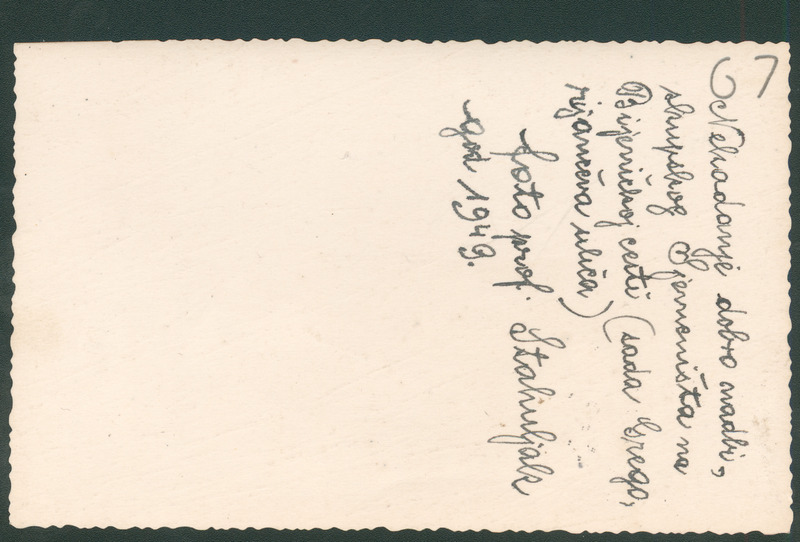 67
Nekadanje dobro nadbi,
skupskog Sjemeništa na
Bijeničkoj cesti (sada Grego,
rijančeva ulica)
foto prof. Stahuljak
god 1949.